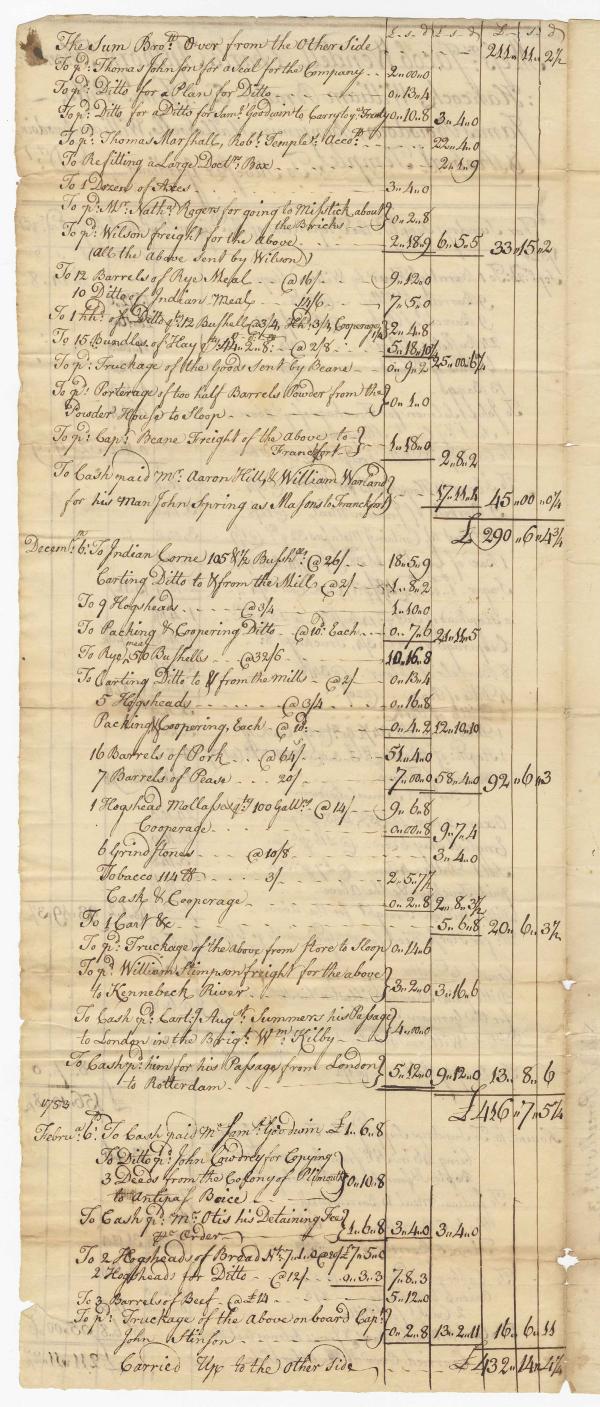 £ s d £ s d £ s d
The Sum Bro.t Over from the Other Side 211 " 11 " 2½
To p.d Thomas Johnson for a Seal for the Company 2 " 00 " 0
To p.d Ditto for a Plan for Ditto 0 " 13 " 4
To p.d Ditto for a Ditto for Sam.l Goodwin to Carry to y.e 0 " 10 " 8 3 " 4 " 0
To p.d Thomas Marshall, Rob.t Temple Acco.t 22 " 4 " 0
To Refitting a Large Doct.rs Box 2 " 1 " 9
To 1 Dozen of Axes 3 " 4 " 0
To p.d M.r Nath.l Rogers for going to Misstick about
the Bricks 0 " 2 " 8
To p.d Wilson freight for the above 2 " 18 " 9 6 " 5 " 5 33 " 15 " 2
(all the Above Sent by Wilson)
To 12 Barrels of Rye Meal @ 16/ 9 " 12 " 0
10 Ditto of Indian Meal 14/6 7 " 5 " 0
To 1 hh.d of Ditto q.ty 12 Bushell @ 3/4, Hh.d 3/4, Cooperage 2 " 4 " 8
To 15 Bundles of Hay @ 2/8 5 " 18 " 10½
To p.d Truckage of the Goods Sent by Beane 0 " 9 " 2
To p.d Porterage of too half Barrels Powder from the
Powder House to Sloop 0 " 1 " 0
To p.d Cap.t Beane Freight of the above to
Franckfort 1 " 18 " 0 2 " 8 " 2
To Cash paid M.r Aaron Hill, & William Warland
for his Man John Spring as Masons to Franckfort 17 " 11 " 4 45 " 00 " 0¼
£ 290 " 6 " 4¾
Decem.r 6: To Indian Corne 105 & ½ Bush.ls @ 26/ 18 " 5 " 9
Carting Ditto to & from the Mill @ 2/ 1 " 8 " 2
To 9 Hogsheads @ 3/4 1 " 10 " 0
To Packing & Coopering Ditto @ 10.d Each 0 " 7 " 6 21 " 11 " 5
To Rye meal 50 Bushells @ 32/6 10 " 16 " 8
To Carting Ditto to & from the mills @ 2/ 0 " 13 " 4
5 Hogsheads @ 3/4 0 " 16 " 8
Packing & Coopering, Each @ 10.d 0 " 4 " 2 12 " 10 " 10
16 Barrels of Pork @ 64/ 51 " 4 " 0
7 Barrels of Pease 20/ 7 " 00 " 0 58 " 4 " 0 92 " 6 " 3
1 Hogshead Mollasses q.ty 100 Gall.ns @ 14/ 9 " 6 " 8
Cooperage 0 " 00 " 8 9 " 7 " 4
6 Grindstones @ 10/8 3 " 4 " 0
Tobacco 114 lb 3/ 2 " 5 " 7½
Cask & Cooperage 0 " 2 " 8 2 " 8 " 3½
To 1 Cart &c 5 " 6 " 8 20 " 6 " 3½
To p.d Truckage of the above from Store to Sloop 0 " 14 " 6
To p.d William Stimpson freight for the above
to Kennebeck River 3 " 2 " 0 3 " 16 " 6
To Cash p.d Cart.g Aug.st Summers his Passage
to London in the Brig.t W.m Kilby 4 " 00 " 0
To Cash p.d him for his Passage from London
to Rotterdam 5 " 12 " 0 9 " 12 " 0 13 " 8 " 6
£ 416 " 7 " 5¼
1753
Februa. 6: To Cash paid M.r Sam.l Goodwin £ 1 " 6 " 8
To Ditto p.d John Cowdrey for Copying
3 Deeds from the Colony of Plimouth
to Antipas Boice 0 " 10 " 8
To Cash p.d M.r Otis his Detaining Fee
Order 1 " 6 " 8 3 " 4 " 0 3 " 4 " 0
To 2 Hogsheads of Bread £ 7 " 5 " 0
2 Hogsheads for Ditto @ 12/ 0 " 3 " 3 7 " 8 " 3
To 3 Barrels of Beef @ £14 5 " 12 " 0
To p.d Truckage of the Above on board Cap.t
John Stinson 0 " 2 " 8 13 " 2 " 11 16 " 6 " 11
Carried Up to the Other Side £ 432 " 14 " 4¼